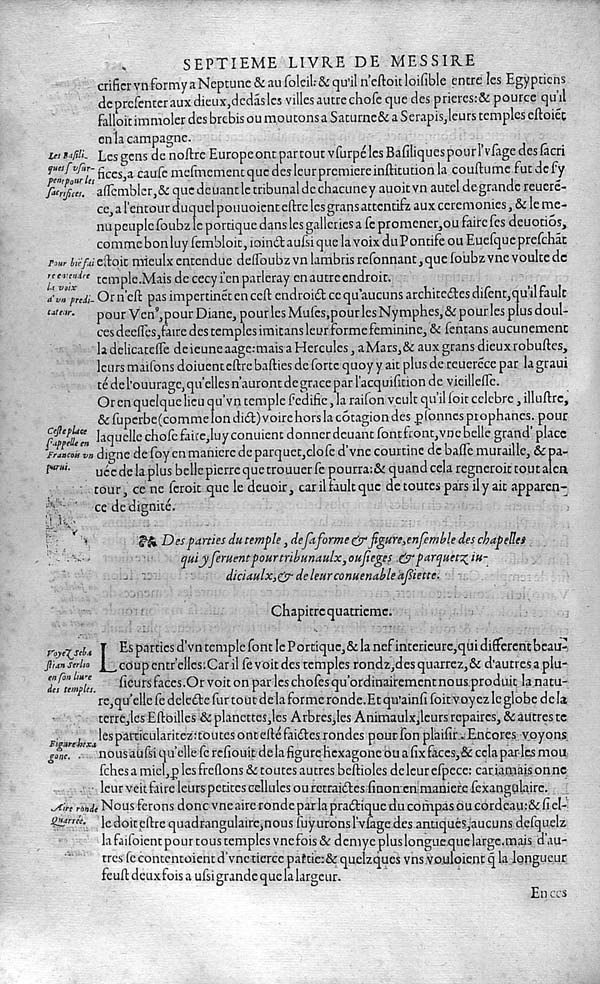 SEPTIEME LIVRE DE MESSIRE
crifier vn formy a Neptune & au soleil: & qu'il n'estoit loisible entre les Egyptiens
de presenter aux dieux, dedãs les villes autre chose que des prieres: & pource qu'il
falloit immoler des brebis ou moutons a Saturne & a Serapis, leurs temples estoiẽt
en la campagne.
Les Basili-
ques s vsur-
pent pour les
sacrifices.
Les gens de nostre Europe ont par tout vsurpé les Basiliques pour l'vsage des sacri
fices, a cause mesmement que des leur premiere institution la coustume fut de s'y
assembler, & que deuant le tribunal de chacune y auoit vn autel de grande reuerẽ-
ce, a l'entour duquel pouuoient estre les grans attentifz aux ceremonies, & le me-
nu peuple soubz le portique dans les galleries a se promener, ou faire ses deuotiõs,
comme bon luy sembloit, ioinct aussi que la voix du Pontife ou Euesque preschãt
Pour biẽ fai
re entendre
la voix
d'vn predi-
cateur.
estoit mieulx entendue dessoubz vn lambris resonnant, que soubz vne voulte de
temple. Mais de cecy i'en parleray en autre endroit.
Or n'est pas impertinẽt en cest endroict ce qu'aucuns architectes disent, qu'il fault
pour Venꝰ, pour Diane, pour les Muses, pour les Nymphes, & pour les plus doul-
ces deesses, faire des temples imitans leur forme feminine, & sentans aucunement
la delicatesse de ieune aage: mais a Hercules, a Mars, & aux grans dieux robustes,
leurs maisons doiuent estre basties de sorte quoy y ait plus de reuerẽce par la graui
té de l'ouurage, qu'elles n'auront de grace par l'acquisition de vieillesse.
Or en quelque lieu qu'vn temple s'edifie, la raison veult qu'il soit celebre, illustre,
& superbe (comme lon dict) voire hors la cõtagion des ꝑsonnes prophanes. pour
Ceste place
s'appelle en
Francois vn
parui.
laquelle chose faire, luy conuient donner deuant son front, vne belle grand' place
digne de soy en maniere de parquet, close d'vne courtine de basse muraille, & pa-
uée de la plus belle pierre que trouuer se pourra: & quand cela regneroit tout alen
tour, ce ne seroit que le deuoir, car il fault que de toutes pars il y ait apparen-
ce de dignité.
Des parties du temple, de sa forme & figure, ensemble des chapelles
qui y seruent pour tribunaulx, ou sieges & parquetz iu-
diciaulx, & de leur conuenable assiette.
Chapitre quatrieme.
Voyez Seba
stian Serlio
en son liure
des temples.
LEs parties d'vn temple sont le Portique, & la nef interieure, qui different beau-
coup entr'elles: Car il se voit des temples rondz, des quarrez, & d'autres a plu-
sieurs faces. Or voit on par les choses qu'ordinairement nous produit la natu-
re, qu'elle se delecte sur tout de la forme ronde. Et qu'ainsi soit voyez le globe de la
terre, les Estoilles & planettes, les Arbres, les Animaulx, leurs repaires, & autres te
les particularitez: toutes ont esté faictes rondes pour son plaisir. Encores voyons
Figure hexa
gone.
nous aussi qu'elle se resiouit de la figure hexagone ou a six faces, & cela par les mou
sches a miel, ꝑ les freslons & toutes autres bestioles de leur espece: car iamais on ne
leur veit faire leurs petites cellules ou retraictes sinon en maniere sexangulaire.
Aire ronde
Quarrée.
Nous ferons donc vne aire ronde par la practique du compas ou cordeau: & si el-
le doit estre quadrangulaire, nous suyurons l'vsage des antiques, aucuns desquelz
la faisoient pour tous temples vne fois & demye plus longue que large. mais d'au-
tres se contentoient d'vne tierce partie: & quelzques vns vouloient q̃ la longueur
feust deux fois aussi grande que la largeur.
En ces